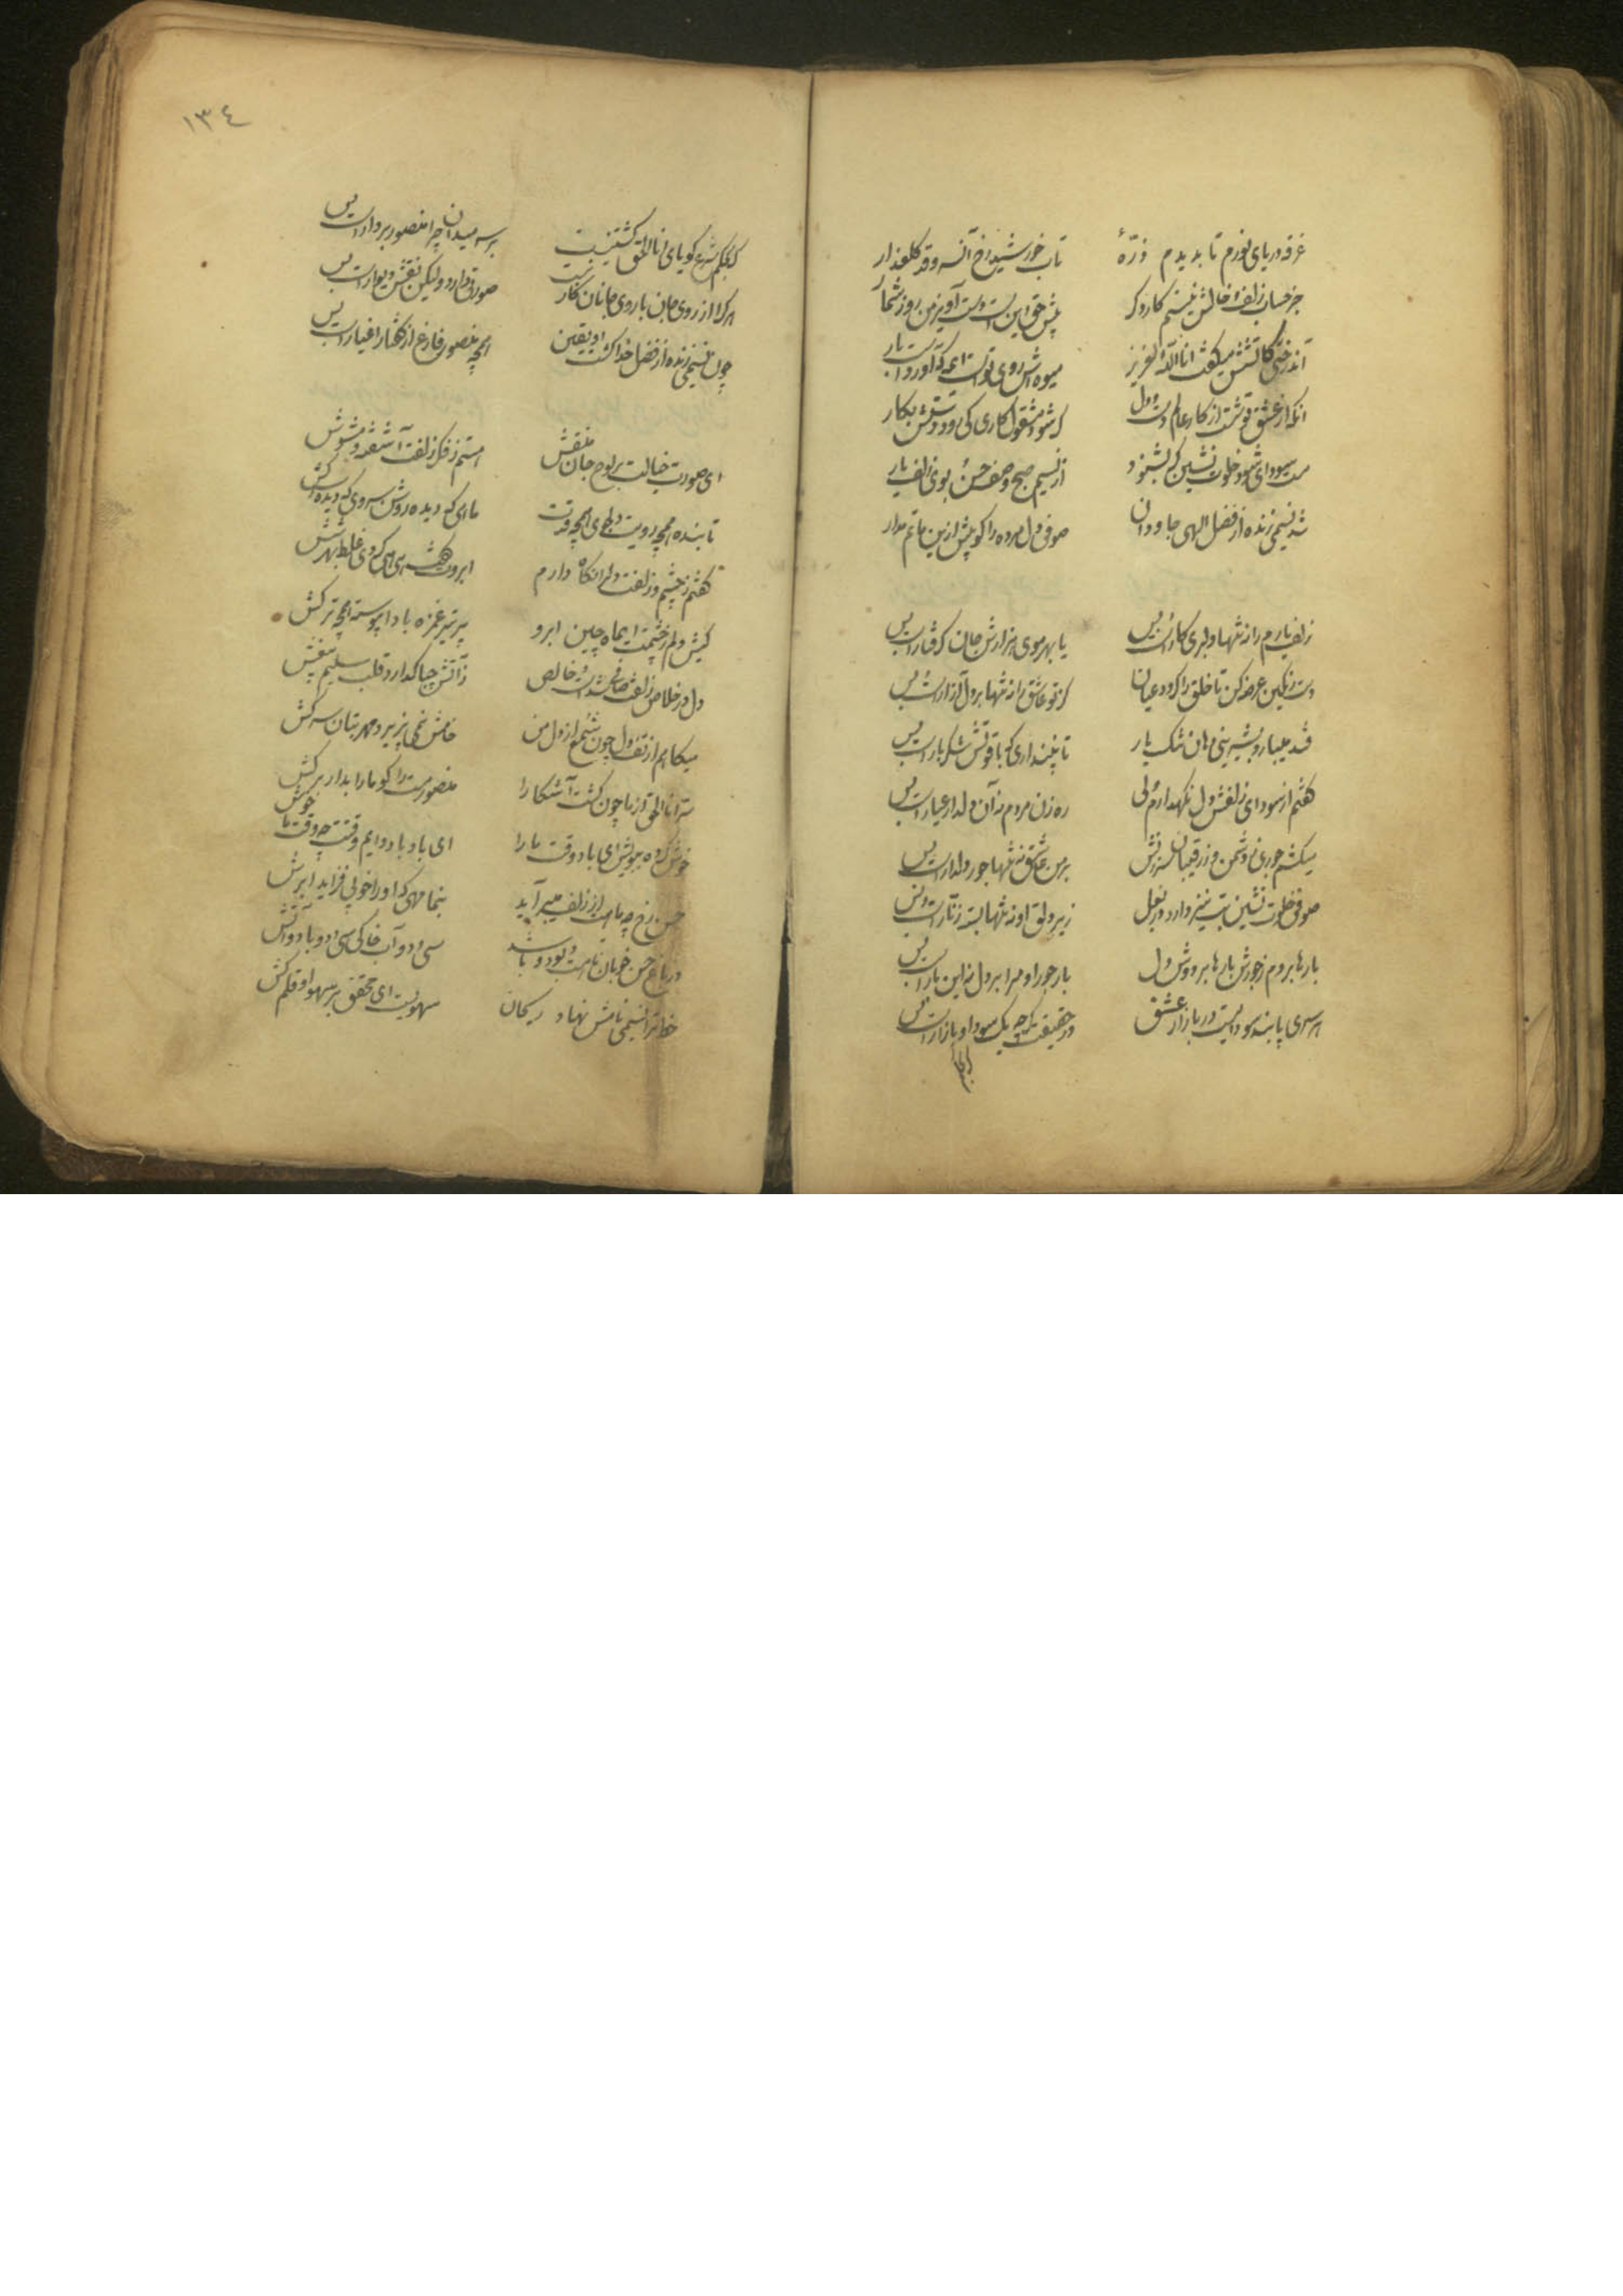 غرقه دریای نورم تا بدیدم ذرّهٔ
تاب خورشید رخ آن سرو قد گلعذار
جز حساب زلف و خالش نیستم کار دگر
پیش حق این است دست آویز من روز شمار
آن درختی کآتشش میگفت انا الله العزیز
میوه‌اش روی تو است
آنکه از عشق تو شست از کار عالم دست و دل
کی شود مشغول کاری کی رود دستش بکار
مست سودای تو شد خلوت نشین کو بشنود
از نسیم صبح وصف حسن بوی زلف یار
شد نسیمی زنده از فضل الهی جاودان
صوفی دل مرده را گو بیش ازین ماتم مدار
زلف یارم را نه تنها دلبری کارست و بس
یا بهر موی هزارش جان گرفتارست و بس
دست رنگین عرضه کن تا خلق را گردد عیان
کز تو عاشق را نه تنها بر دل آزارست و بس
قند میبارد بشیرینی دهان تنگ یار
تا نپنداری که یاقوتش شکر بارست و بس
گفتم از سودای زلفش دل نگهدارم ولی
ره زن مردم نه آن دلدار عیارست و بس
میکشم جور بی ز دشمن وز رقیبان سرزنش
بر من عاشق نه تنها جور دلدارست و بس
صوفی خلوت نشین بت نیز دارد در بغل
زیر دلق او نه تنها بسته زنارست و بس
بارها بردم ز جورش بارها بر دوش دل
بار جور او مرا بر دل نه این بارست و بس
هر سری پابند سودائیست در بازار عشق
در حقیقت گرچه یک سودا و بازارست و بس
١٣٤
گر بحکم شرع گویای انا الحق کشتنیست
بر سر میدان چرا منصور بر دارست و بس
هر کرا از روی جان با روی جانان کار نیست
صورتی دارد ولیکن نقش دیوارست و بس
چون نسیمی زنده از فضل خدا گشت او یقین
همچو منصور فارغ از گفتار اغیارست و بس
ای صورت خیالت بر لوح جان منقش
هستم ز فکر زلفت آشفته و مشوش
تابنده همچو رویت و طوبی همچو قدت
ماهی که دیده روشن سروی که دیده سرکش
گفتم ز چشم و زلفت دل را نگاه دارم
ابروت گفت
کیش دلم ز چشمت ای ماه چین ابرو
پر تیر غمزه بادا پیوسته همچو ترکش
دل در خلاص زلفت صافی شدست و خالص
ز آتش چه باک دارد قلب سلیم بیغش
میکاهم از تف دل چون شمع از دل من
خامش نمی‌پذیرد مهر بتان سرکش
سرّ انا الحق از ما چون گشت آشکارا
منصور مست را گو ما را بدار برکش
خوش کرده ببویش ای باد وقت ما را
ای باد باد دایم وقتت چو وقت ما خوش
حسن رخ چو ماهت از زلف میسرآید
بنما مهی که او را خوبی فزاید ابرش
در باغ حسن خوبان تا هست و بود و باشد
سی و دو آب خاکی سی و دو باد و آتش
خط ترا نسیمی نامش نهاد ریحان
سهویست ای محقق بر سهو او قلم کش